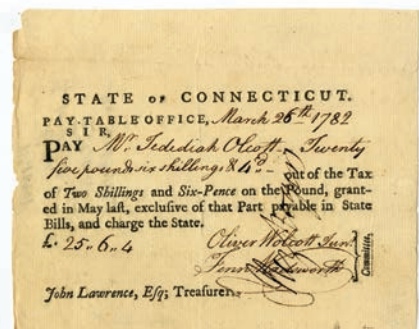 STATE OF CONNECTICUT.
PAY-TABLE OFFICE, March 26th 1782
SIR,
PAY Mr. Jedediah Olcott - Twenty
five pounds six shillings & 4d - out of the Tax
of Two Shillings and Six-Pence on the Pound, grant-
ed in May last, exclusive of that Part payable in State
Bills, and charge the State.
£. 25 " 6 " 4
Oliver Wolcott Junr.
Fenn Wadsworth
Committee.
John Lawrence, Esq; Treasurer.